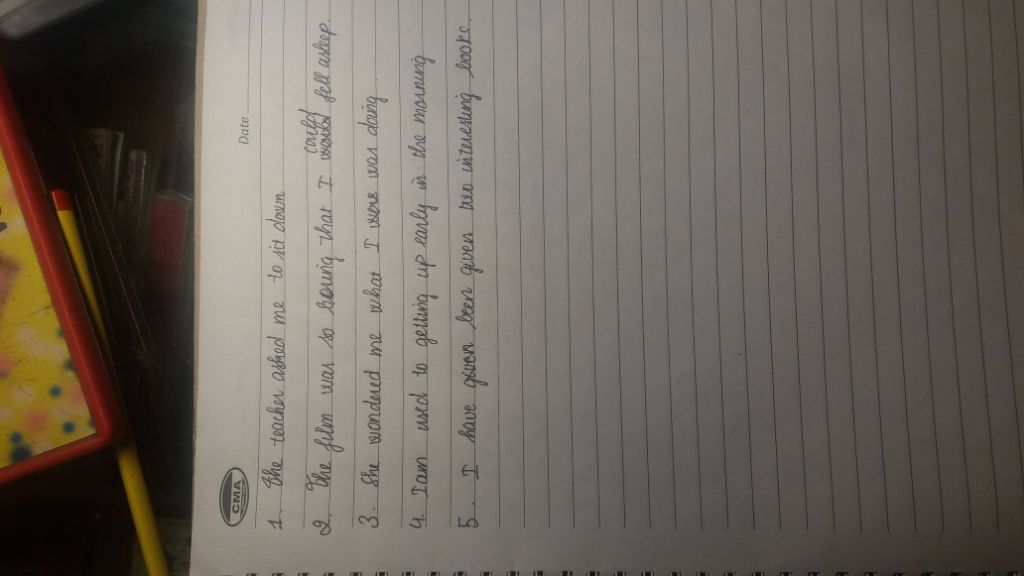 CMA
Date
1. The teacher asked me to sit down
2. The film was so boring that I would could fell asleep.
3. She wondered me what I were was doing.
4. I am used to getting up early in the morning
5. I have given been given two interesting books.